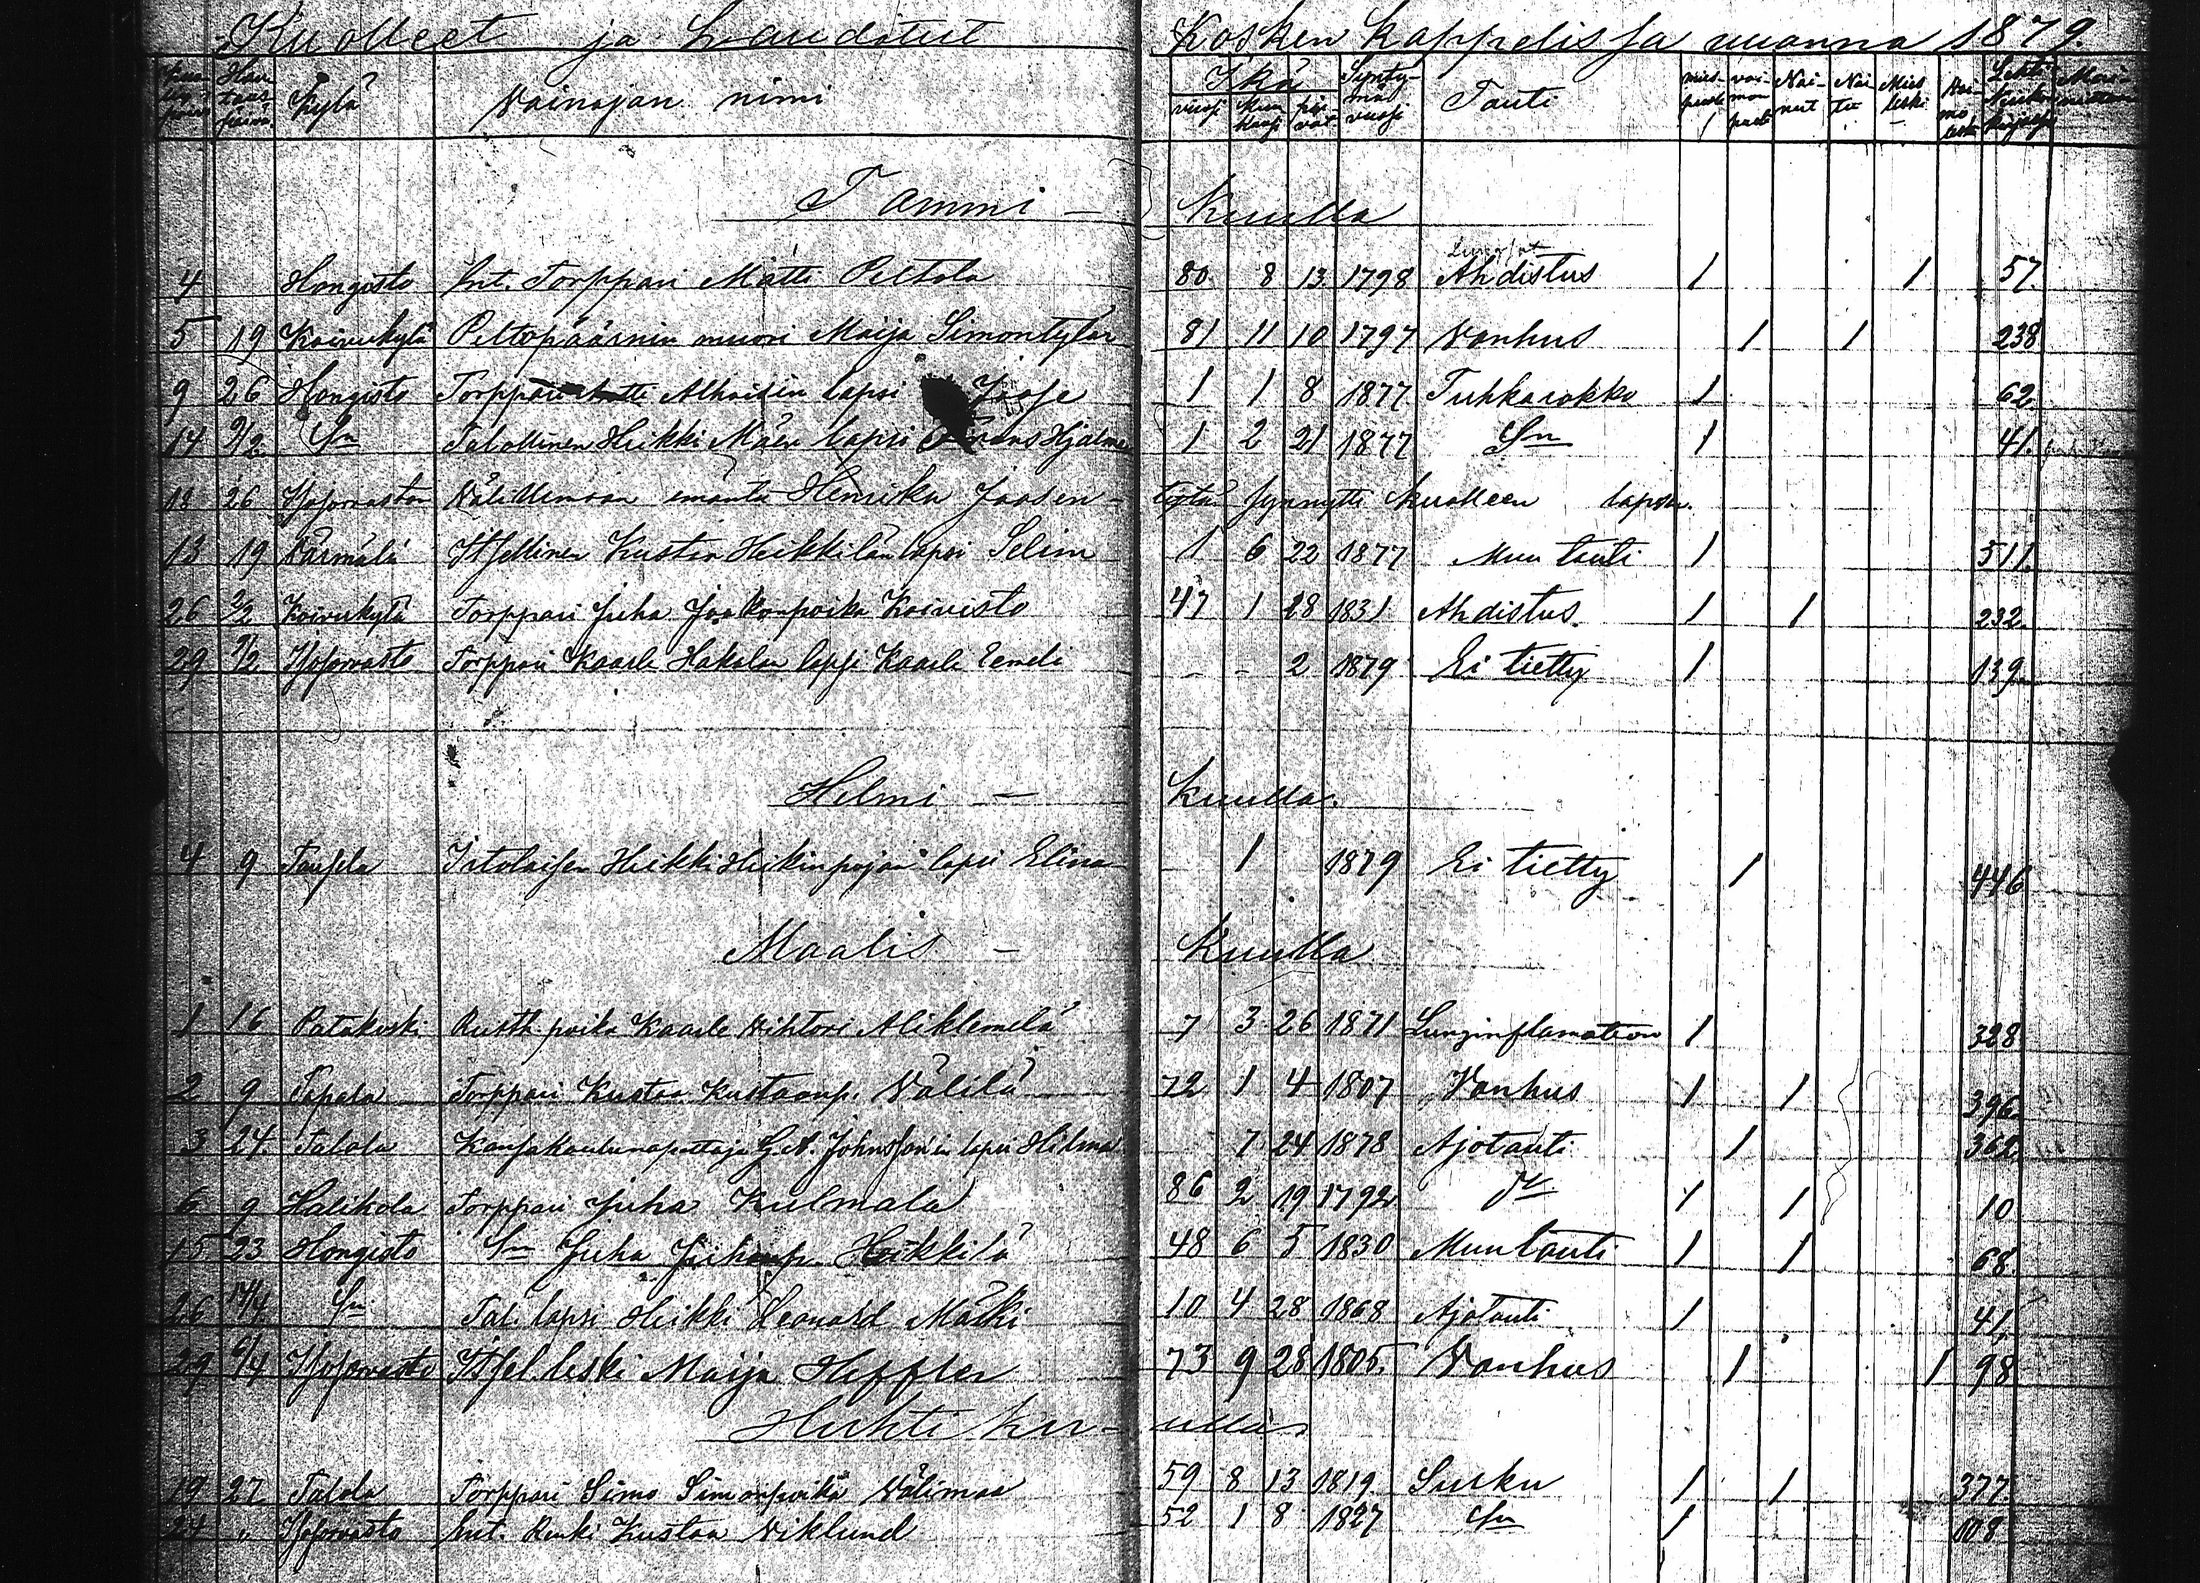 Kuolleet ja Haudatut Kosken kappelissa vuonna 1879.
Kylä Vainajan nimi Ikä vuosi päivät Synty-mä vuosi Tauti mies-puoli vai-mon puoli Nai-nut Nai-tu Mies leski Vai-mo leski Lehti
Tammi - Kuulla
4 Hongisto Ent. Torppari Matti Peltola 80 8 13 1798 Ahdistus 1 1 57.
5 19 Koivukylä Peltopäärnin muori Maija Simontytär 81 11 10 1797 Vanhus 1 1 238
9 26 Hongisto Torppari Alhaisin lapsi Jaase 1 1 8 1877 Tuhkarokko 1 62
14 9/2 Sn Talollinen Heikki Mäen lapsi Frans Hjalm 1 2 21 1877 Sn 1 41.
18 26 Välillemoan emäntä Henrika Jaasen-tytär synnytti kuolleen lapsen.
13 19 Värmälä Itsellinen Kustaa Heikkilän lapsi Selim 1 6 22 1877 Muu tauti 1 511.
26 2/2 Koivukylä Torppari Juha Jaakonpoika Koivisto 47 1 28 1831 Ahdistus. 1 1 232.
29 Torppari Kaarle Hakalan lapsi Kaarle Eemeli - - 2 1879 Ei tietty 1 139.
Helmi - Kuulla.
4 9 Tausela Irtolaisen Heikki Heikinpojan lapsi Elina 1 1879 Ei tietty 1 446
Maalis - Kuulla
1 16 Patakoski Rusth. poika Kaarle Vihtori Aliklemelä 7 3 26 1871 Lunginflamation 1 328
2 9 Tapala Torppari Kustaa Kustaanp. Välilä 72 1 4 1807 Vanhus 1 1 396.
3 24. Talola Kansakoulunopettaja G.A. Johnsson'in lapsi Hilma 7 24 1878 Ajotauti 1 362.
6 9 Halikola Torppari Juha Kulmala 86 2 19 1792 1 1 10
15 23 Hongisto Sn Juha Juhanp. Heikkilä 48 6 5 1830 Muu tauti 1 1 68
26 14/4 Sn Tal. lapsi Heikki Leonard Mäki 10 4 28 1868 Ajotauti 1 41.
29 6/4 Itsel. leski Maija Heffler 73 9 28 1805. Vanhus 1 1 98
Huhti kuulla
19 27 Talola Torppari Simo Simonpoika Välimaa 59 8 13 1819. Surku 1 1 377.
24 " Ent. Renki Kustaa Viklund 52 1 8 1827 Sn 1 108